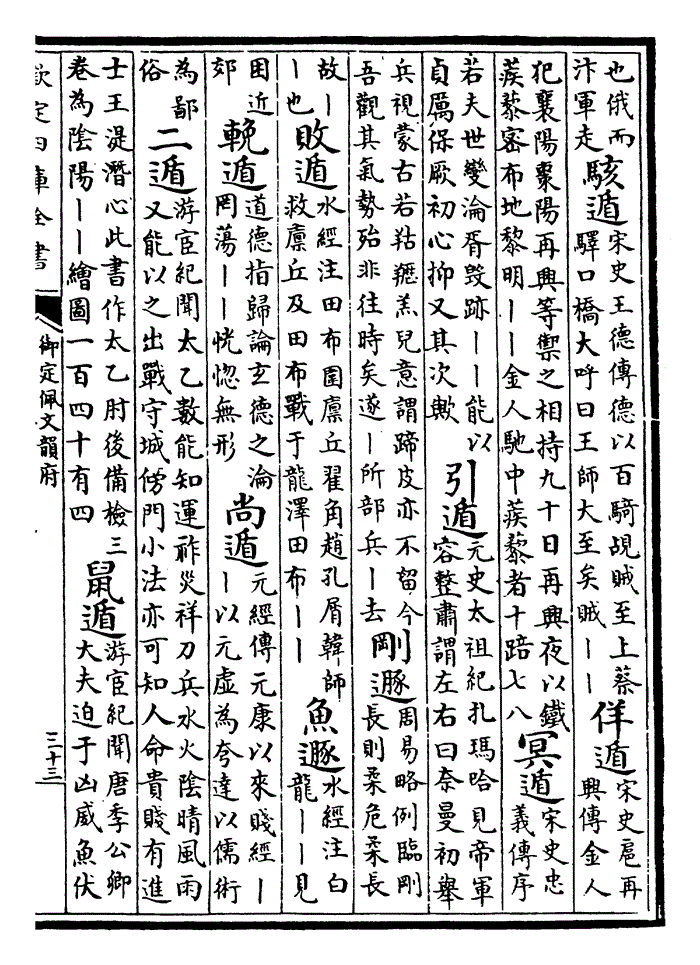 也俄而
汴軍走
駭遁
宋史王德傳德以百騎覘賊至上蔡
驛口橋大呼曰王師大至矣賊丨丨
佯遁
宋史扈再
興傳金人
犯襄陽棗陽再興等禦之相持九十日再興夜以鐵
蒺藜密布地黎明丨丨金人馳中蒺藜者十踣七八
冥遁
宋史忠
義傳序
若夫世變淪胥毀跡丨丨能以
貞厲保厥初心抑又其次歟
引遁
元史太祖紀扎瑪哈見帝軍
容整肅謂左右曰奈曼初舉
兵視蒙古若羖䍽羔兒意謂蹄皮亦不留今
吾觀其氣勢殆非往時矣遂丨所部兵丨去
剛遯
周易略例臨剛
長則柔危柔長
故丨
丨也
敗遁
水經注田布圍廩丘翟角趙孔屑韓師
救廩丘及田布戰于龍澤田布丨丨
魚遯
水經注白
龍丨丨見
困近
郊
輓遁
道德指歸論玄德之淪
罔蕩丨丨恍惚無形
尚遁
元經傳元康以來賤經丨
丨以元虛為夸達以儒術
為鄙
俗
二遁
游宦紀聞太乙數能知運祚災祥刀兵水火陰晴風雨
又能以之出戰守城傍門小法亦可知人命貴賤有進
士王湜潛心此書作太乙肘後備檢三
卷為陰陽丨丨繪圖一百四十有四
鼠遁
游宦紀聞唐季公卿
大夫迫于凶威魚伏
欽定四庫全書
御定佩文韻府
三十三